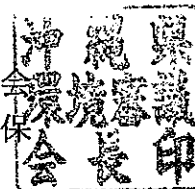 沖縄県
環境審議
会長印
会
保